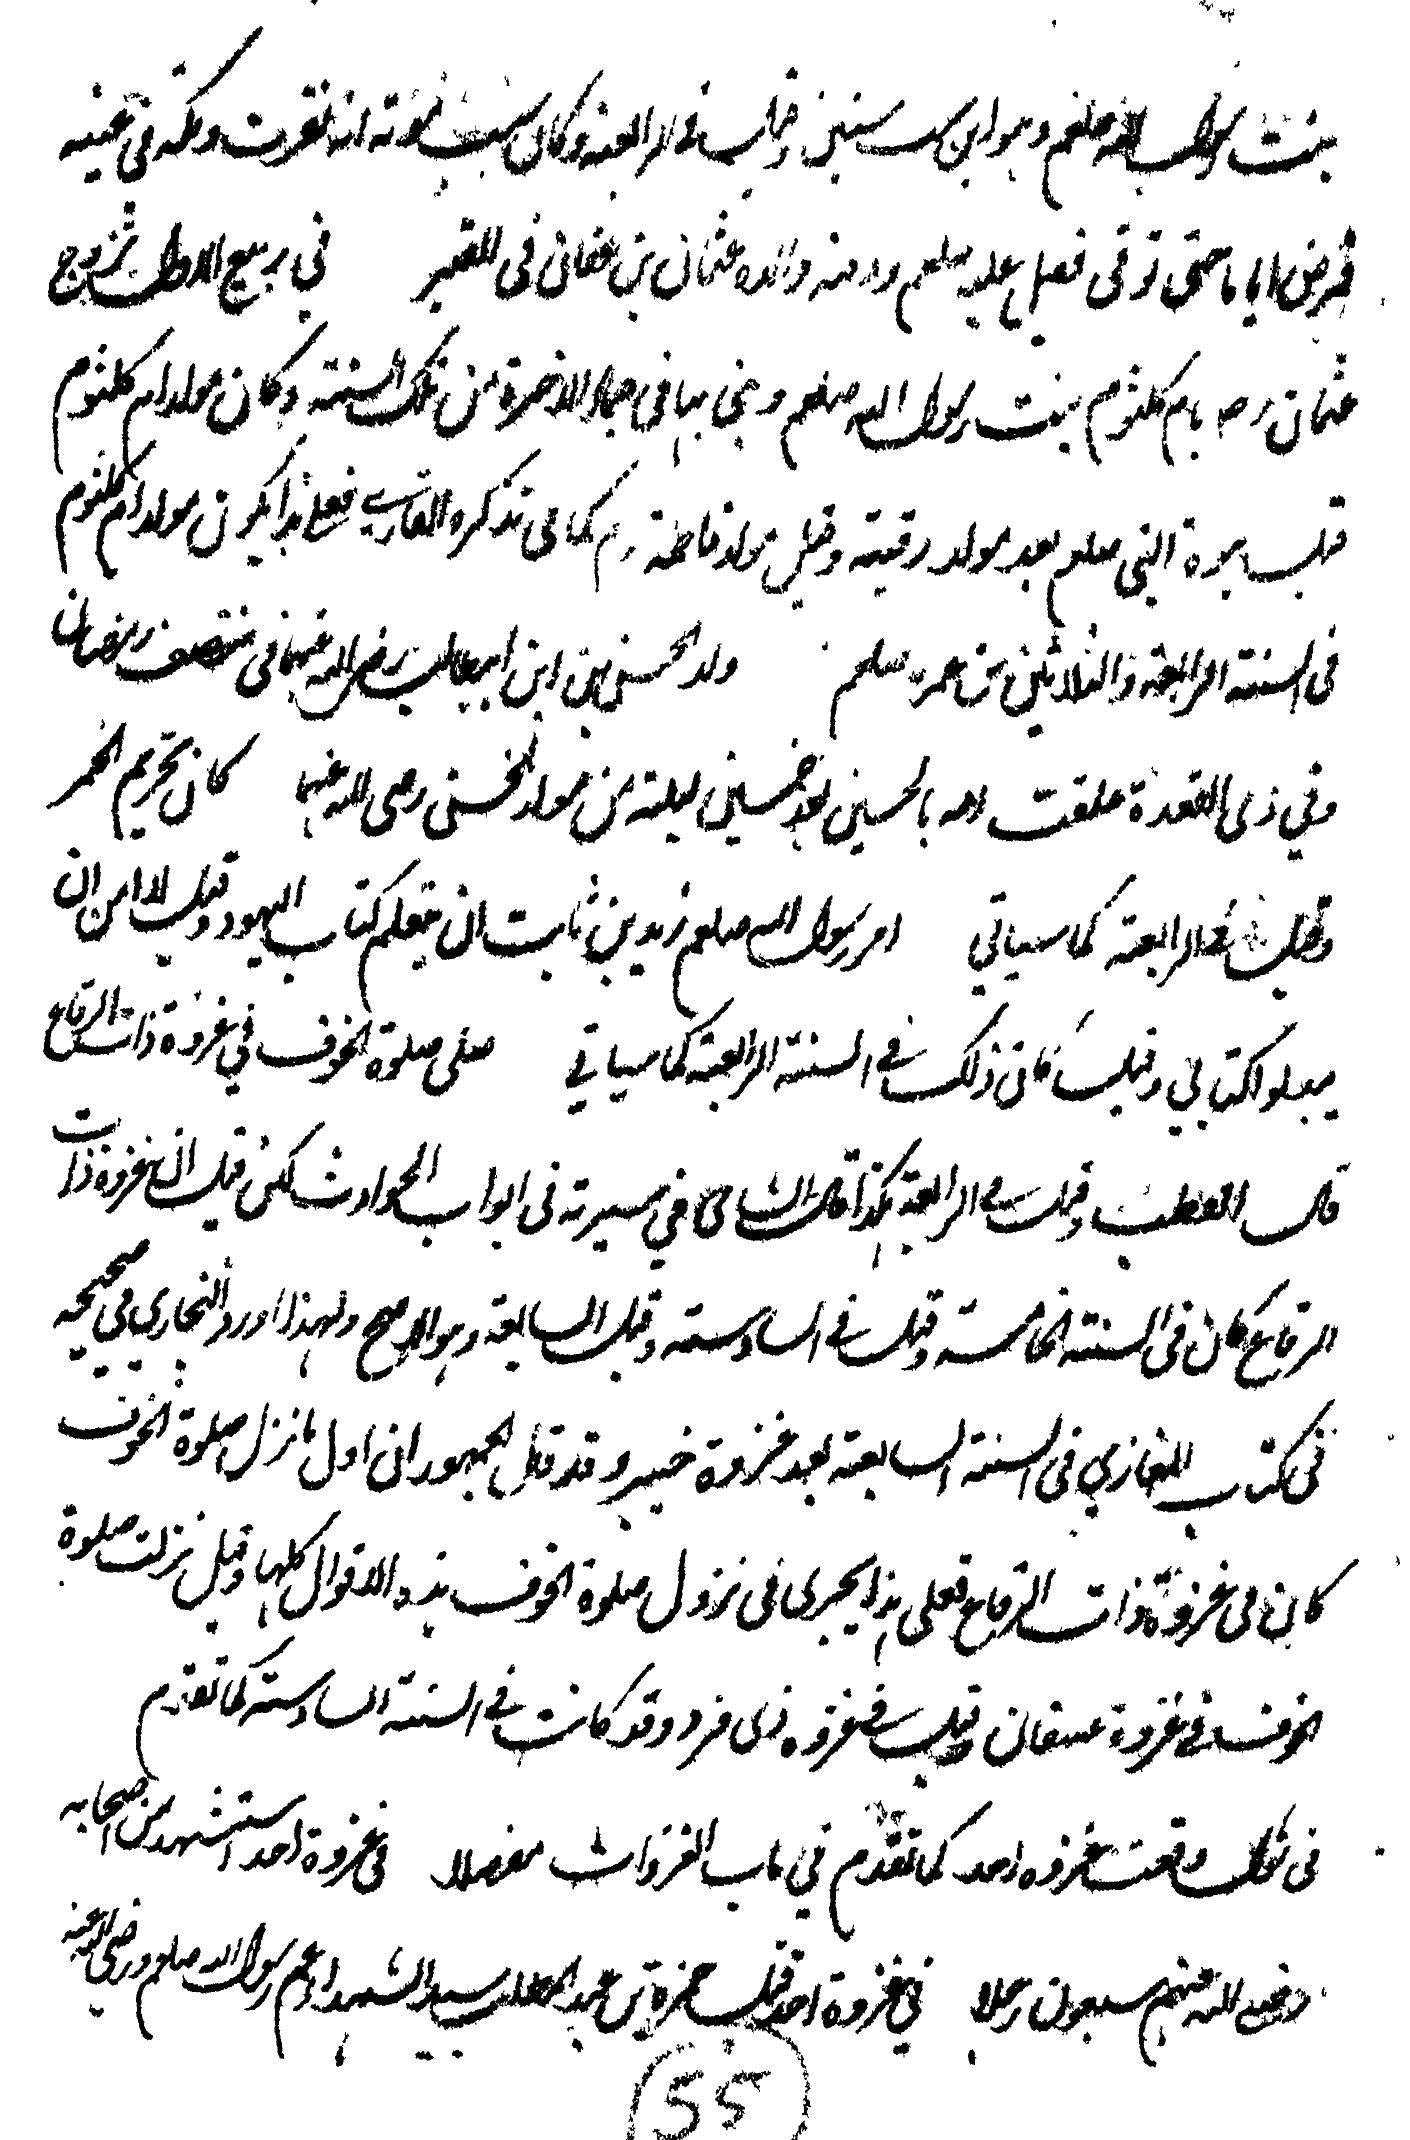 بنت رسول الله صلعم وهو ابن ست سنين وقيل في الرابعة وكان سبب موته انه نقرت ديكه في عينه
فمرض اياما حتى توفي فصلى عليه صلعم ودفنه والده عثمان بن عفان في القبر في ربيع الاول تزوج
عثمان رضه بام كلثوم بنت رسول الله صلعم وبنى بها في جماد الاخرة من تلك السنة وكان مولد ام كلثوم
قبل نبوة النبي صلعم بعد مولد رقية وقبل مولد فاطمة رم كما في تذكرة القاري فعلى هذا يكون مولد ام كلثوم
في السنة الرابعة والثلاثين من عمره صلعم ولد الحسن بن ابن ابيطالب رضي الله عنهما في منتصف رمضان
وفي ذي القعدة علقت امه بالحسين بعد خمسين ليلة من مولد الحسن رضي الله عنهما كان تحريم الخمر
وقيل في الرابعة كما سياتي امر رسول الله صلعم زيد بن ثابت ان يتعلم كتاب اليهود وقيل لا امن ان
يبدلوا كتابي وقيل كان ذلك في السنة الرابعة كما سياتي صلى صلوة الخوف في غزوة ذات الرقاع
قال القطب وقيل في الرابعة هكذا قال الشامي في سيرته في ابواب الحوادث لكن قيل ان غزوة ذات
الرقاع كان في السنة الخامسة وقيل في السادسة وقيل السابعة وهو الاصح ولهذا اورد البخاري في صحيحه
في كتاب المغازي في السنة السابعة بعد غزوة خيبر وقد قال الجمهور ان اول ما نزل صلوة الخوف
كان في غزوة ذات الرقاع فعلى هذا يجري في نزول صلوة الخوف هذه الاقوال كلها وقيل نزلت صلوة
الخوف في غزوة عسفان وقيل في غزوه ذي قرد وقد كانت في السنة السادسة كما تقدم
في شوال وقعت غزوه احد كما تقدم في باب الغزوات مفصلا في غزوة احد استشهد من اصحابه
رضي الله عنهم سبعون رجلا في غزوة احد قتل حمزة بن عبد المطلب سيد الشهداء وعم رسول الله صلعم ورضي الله عنه
55